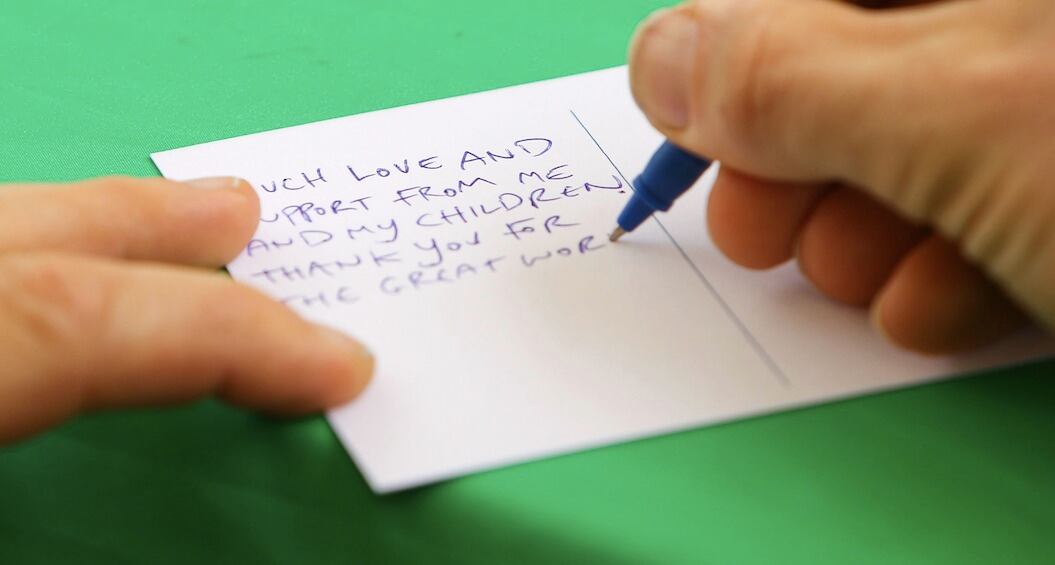 UCH LOVE AND
UPPORT FROM ME
AND MY CHILDREN!
THANK YOU FOR
THE GREAT WOR